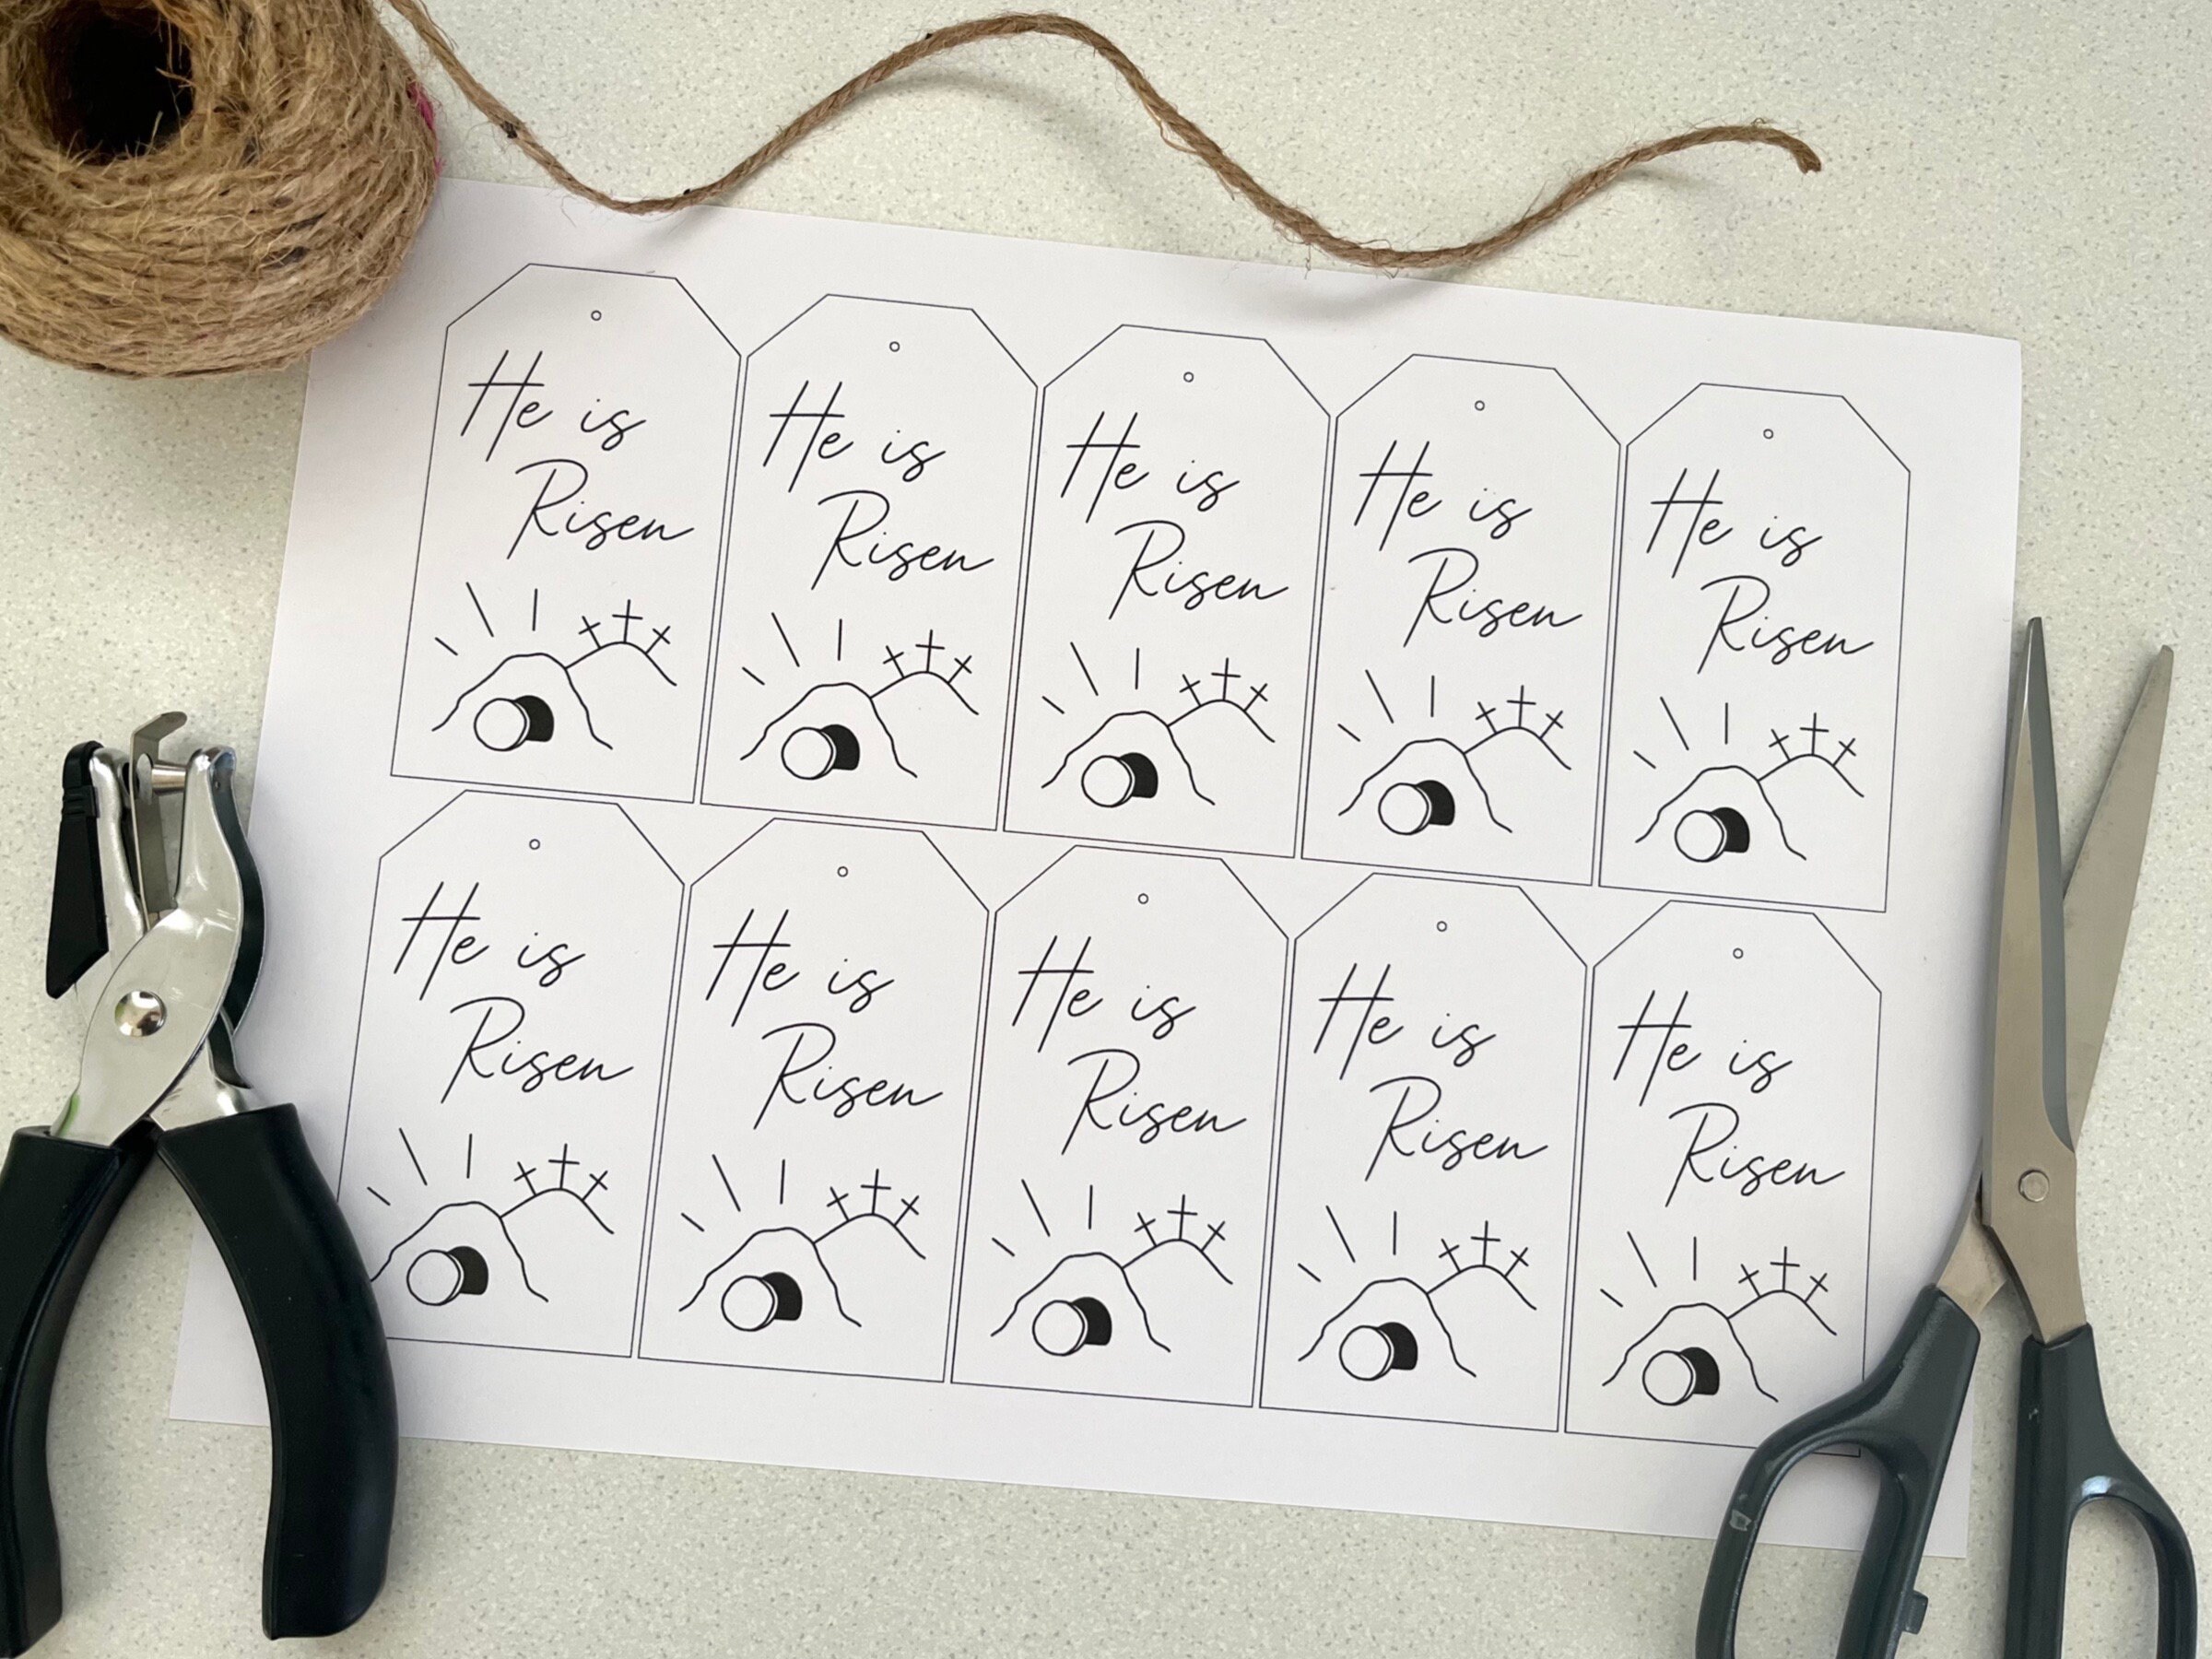 He is
Risen
He is
Risen
He is
Risen
He is
Risen
He is
Risen
He is
Risen
He is
Risen
He is
Risen
He is
Risen
He is
Risen